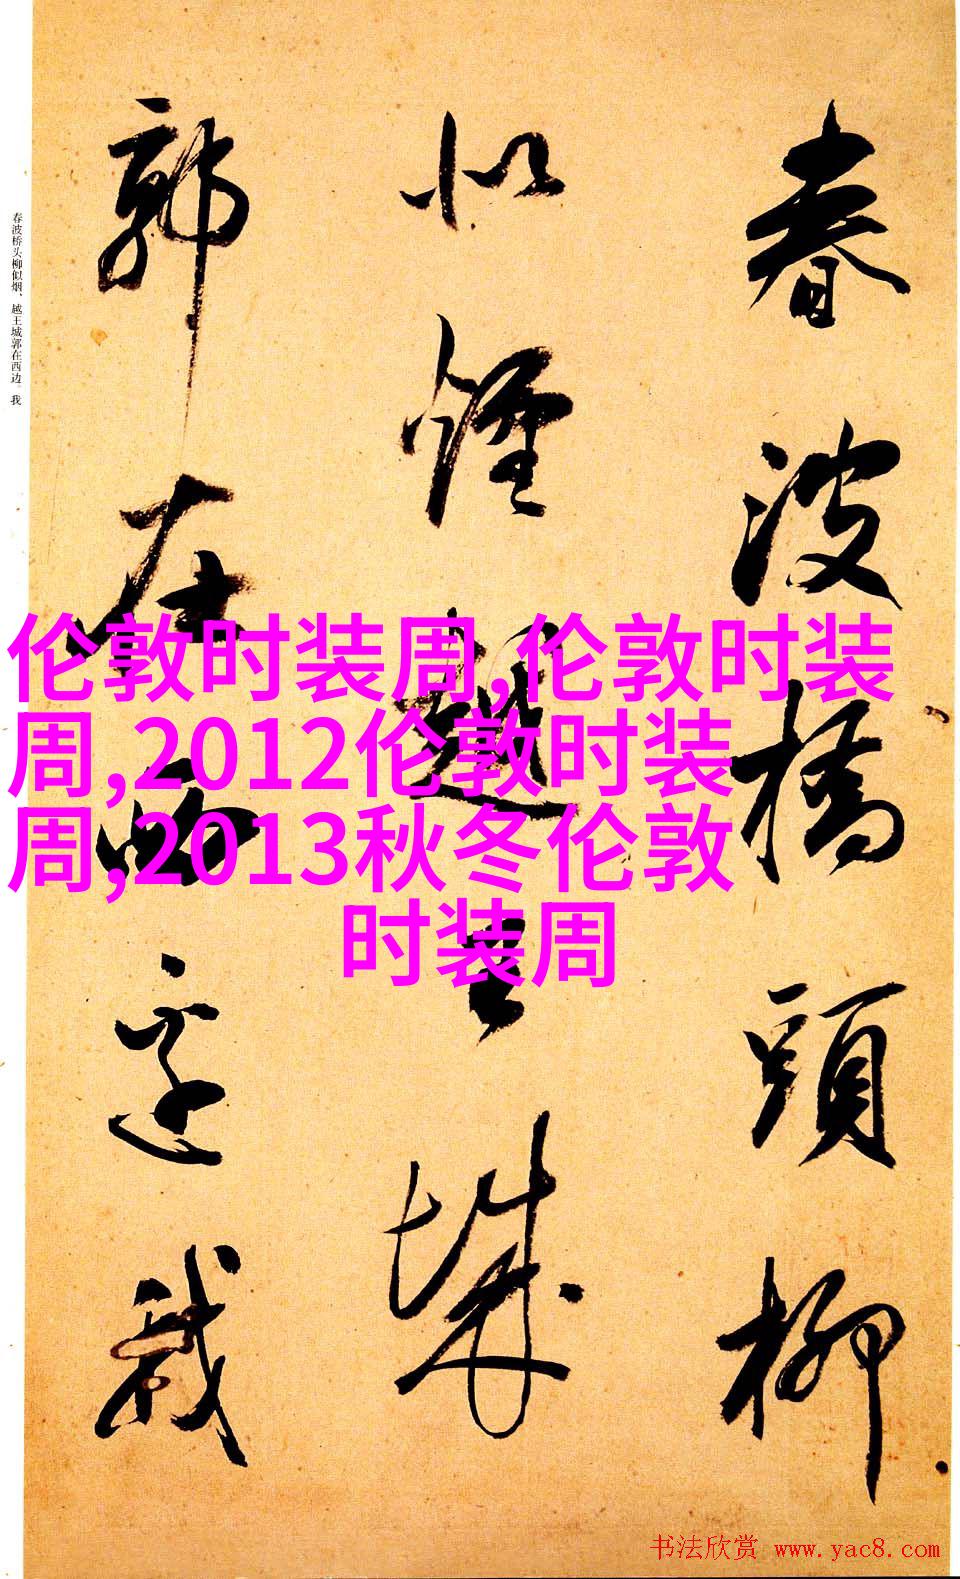 春波橋頭柳
似煙越王城
郭在西邊我
春波桥头柳似烟，越王城郭在西边。我
伦敦时装周,伦敦时装
周,2012伦敦时装
周,2013秋冬伦敦
时装周
书法欣赏 www.yac8.com